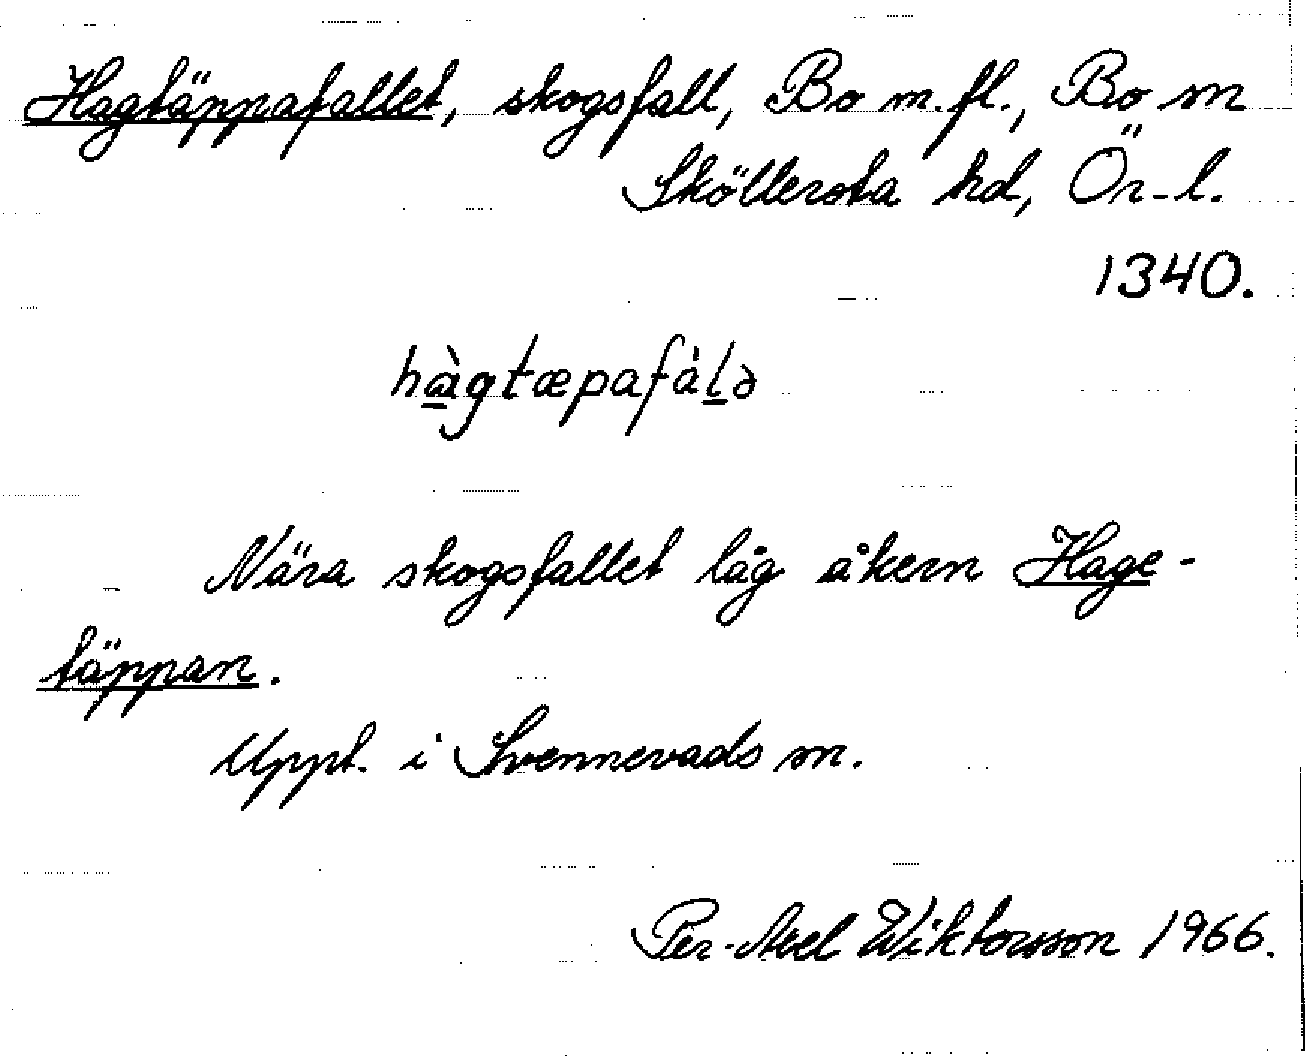 Hagtäppafallet, skogsfall, Bo m.fl., Bo sn
Sköllersta hd, Ör-l.
1340.
hàgtæpafáḷə
Nära skogsfallet låg åkern Hage-
täppan.
Uppt. i Svennevads sn.
Per-Axel Wiktorsson 1966.